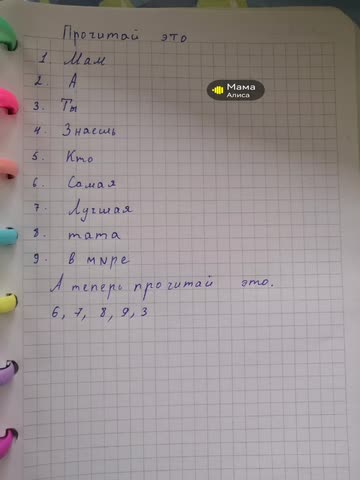 Прочитай это
1. Мам
Мама
Алиса
2. А
3. Ты
4. Знаешь
5. Кто
6. Самая
7. Лучшая
8. тата
9. в мире
А теперь прочитай это.
6, 7, 8, 9, 3